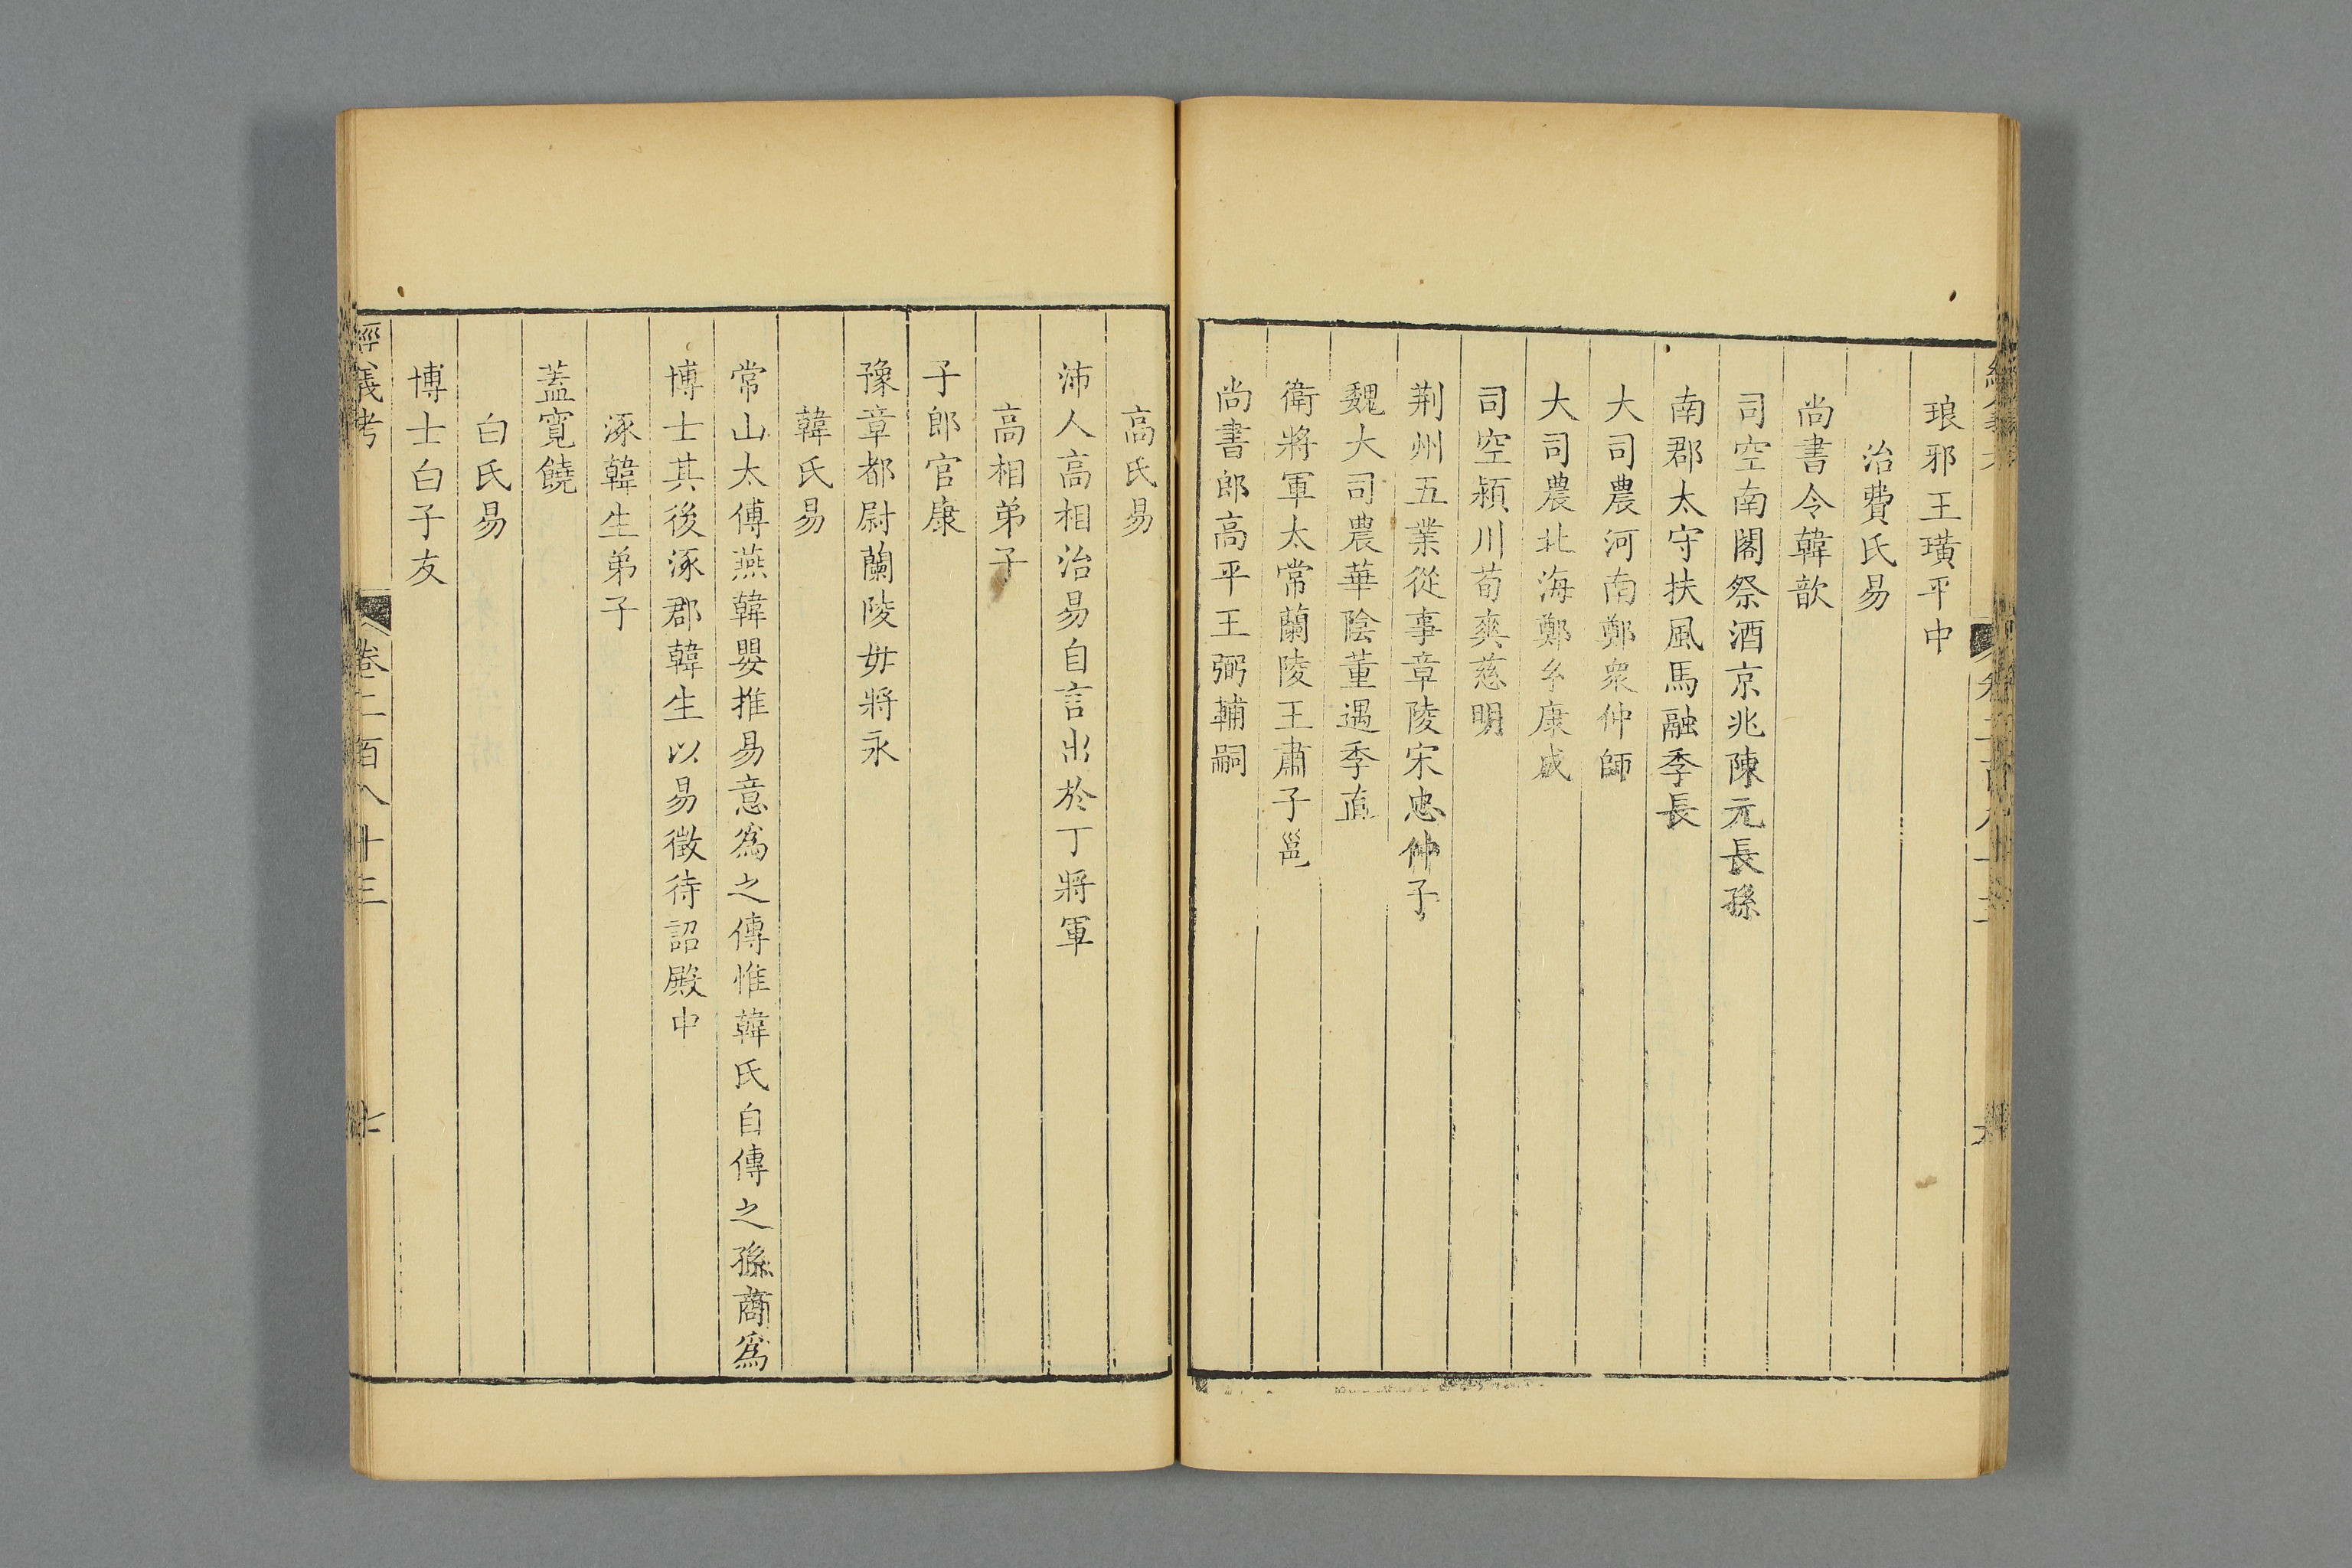 琅邪王璜平中
治費氏易
尚書令韓歆
司空南閣祭酒京兆陳元長孫
南郡太守扶風馬融季長
大司農河南鄭眾仲師
大司農北海鄭𤣥康成
司空潁川荀爽慈明
荆州五業從事章陵宋忠仲子
魏大司農華陰董遇季直
衛將軍太常蘭陵王肅子邕
尚書郎高平王弼輔嗣
高氏易
沛人高相治易自言出於丁將軍
高相弟子
子郎官康
豫章都尉蘭陵毋將永
韓氏易
常山太傅燕韓嬰推易意爲之傳惟韓氏自傳之孫商爲
博士其後涿郡韓生以易徵待詔殿中
涿韓生弟子
蓋寬饒
白氏易
博士白子友
經義考 卷二百八十三 七